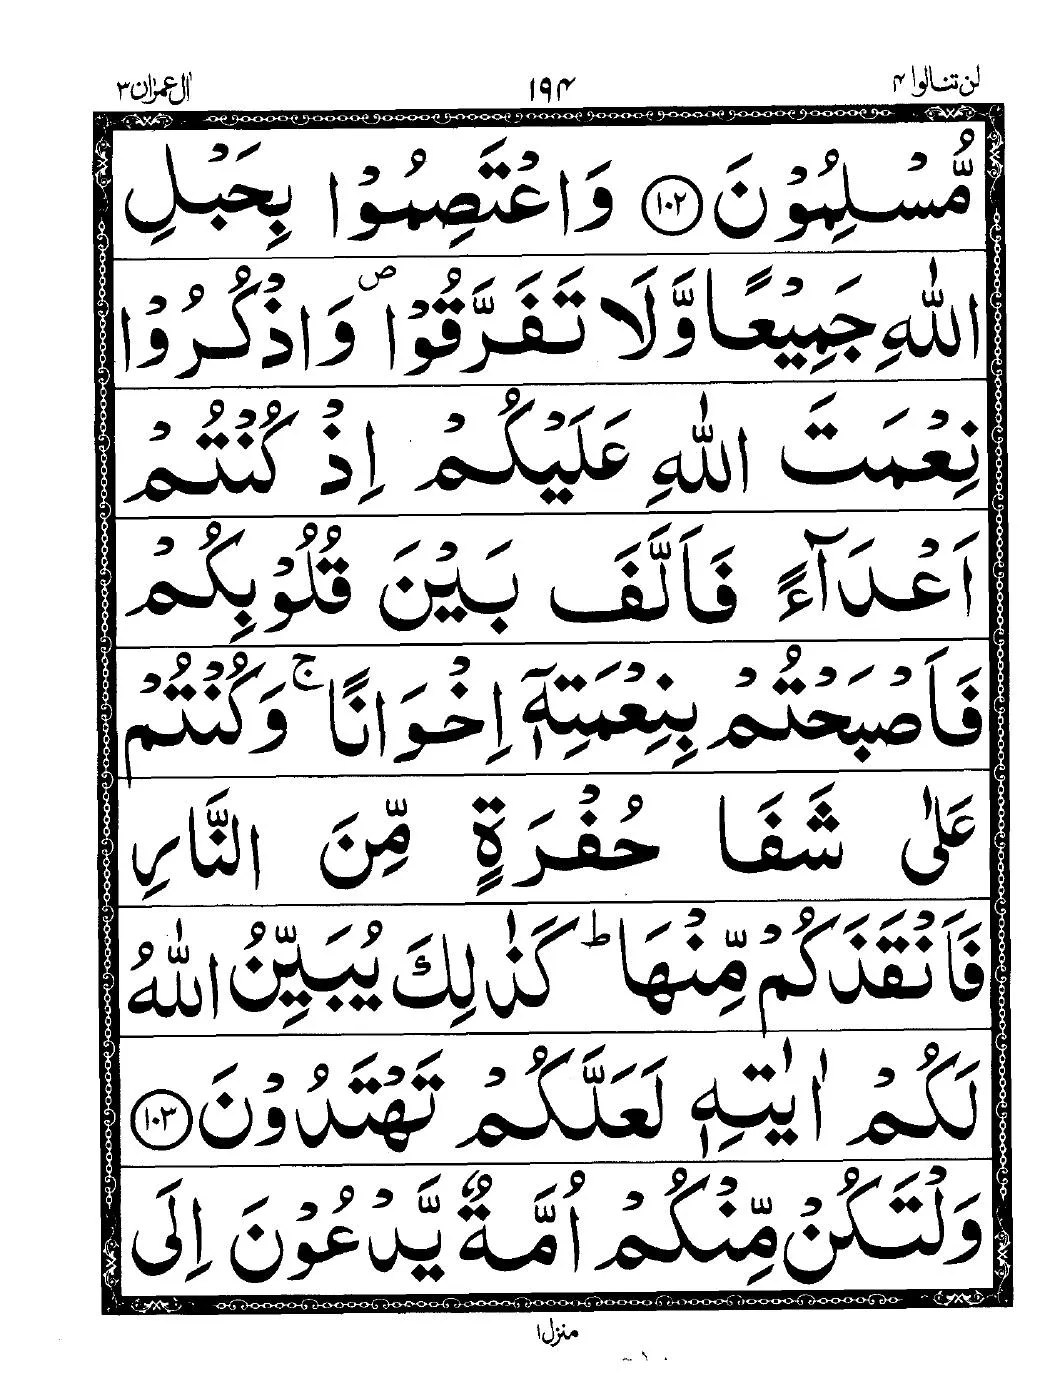 لن تنالوا ۴ ۱۹۴ اٰل عمرٰن ۳
مُّسْلِمُوْنَ ۝۱۰۲ وَاعْتَصِمُوْا بِحَبْلِ
اللّٰهِ جَمِيْعًا وَّلَا تَفَرَّقُوْا ۖ وَاذْكُرُوْا
نِعْمَتَ اللّٰهِ عَلَيْكُمْ اِذْ كُنْتُمْ
اَعْدَآءً فَاَلَّفَ بَيْنَ قُلُوْبِكُمْ
فَاَصْبَحْتُمْ بِنِعْمَتِهٖۤ اِخْوَانًا ۚ وَكُنْتُمْ
عَلٰى شَفَا حُفْرَةٍ مِّنَ النَّارِ
فَاَنْقَذَكُمْ مِّنْهَا ؕ كَذٰلِكَ يُبَيِّنُ اللّٰهُ
لَكُمْ اٰيٰتِهٖ لَعَلَّكُمْ تَهْتَدُوْنَ ۝۱۰۳
وَلْتَكُنْ مِّنْكُمْ اُمَّةٌ يَّدْعُوْنَ اِلَى
منزل ۱